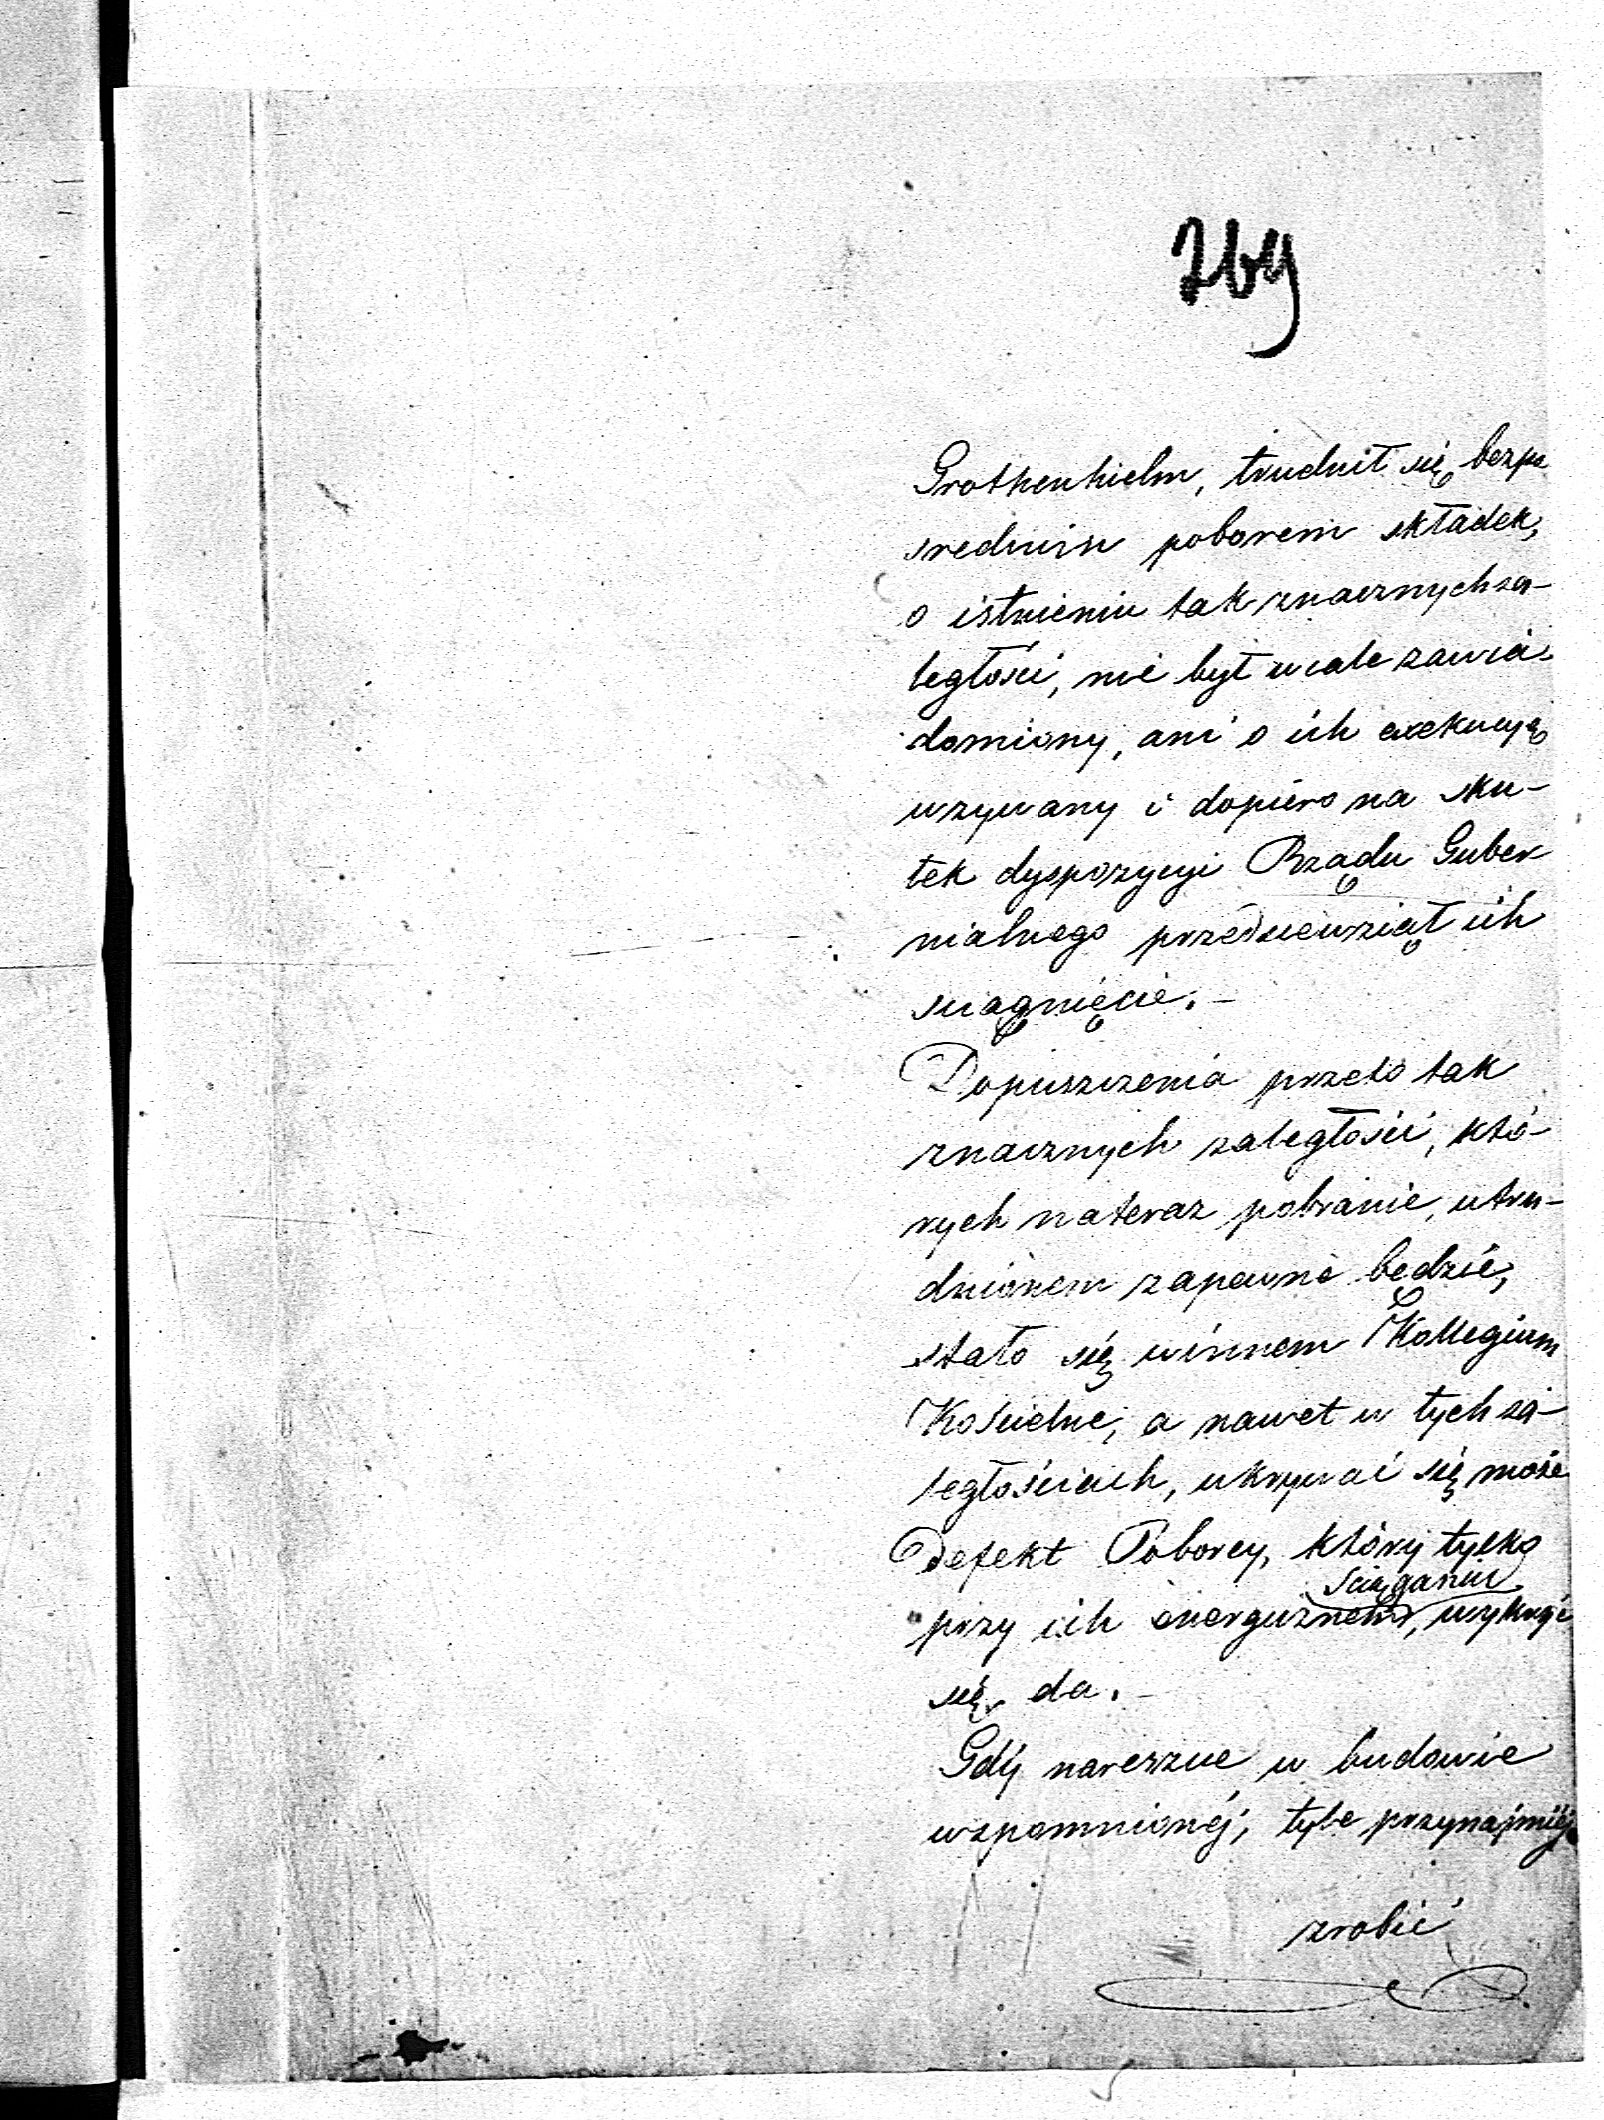 269
Grothenhielm, trudnił się bezpo
srednim poborem składek,
o istnieniu tak znacznych za-
ległości, nie był wcale zawia-
domiony, ani o ich exekucyą
wzywany i dopiero na sku-
tek dyspozycyi Rządu Guber
nialnego przedsiewziął ich
sciągnięcie. -
Dopuszczenia przeto tak
znacznych zaległości, któ-
rych nateraz pobranie, utru-
dnionem zapewne będzie,
stało się winnem Kollegium
Kościelne, a nawet w tych za-
ległościach, ukrywać się może
Defekt Poborcy, który tylko
sciąganiu
przy ich energicznem, wykryć
się da. -
Gdy nareszcie w budowie
wspomnionéj, tyle przynajmniéj
zrobić